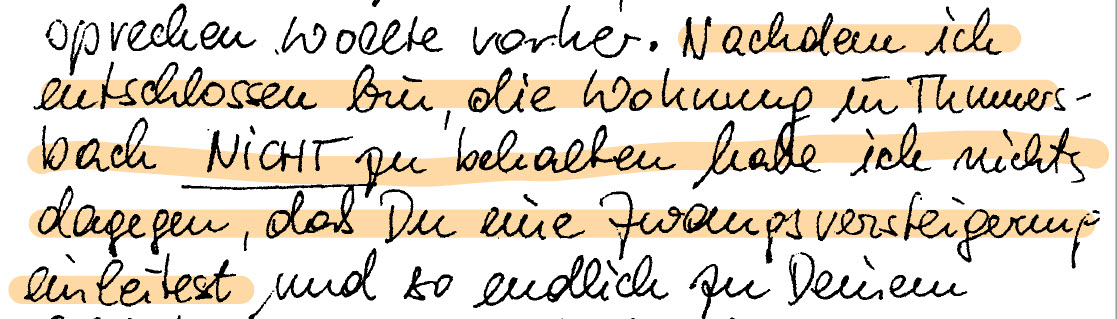 sprechen wollte vorher. Nachdem ich
entschlossen bin, die Wohnung in Thumers-
bach NICHT zu behalten habe ich nichts
dagegen, daß Du eine Zwangsversteigerung
einleitest, und so endlich zu Deinem